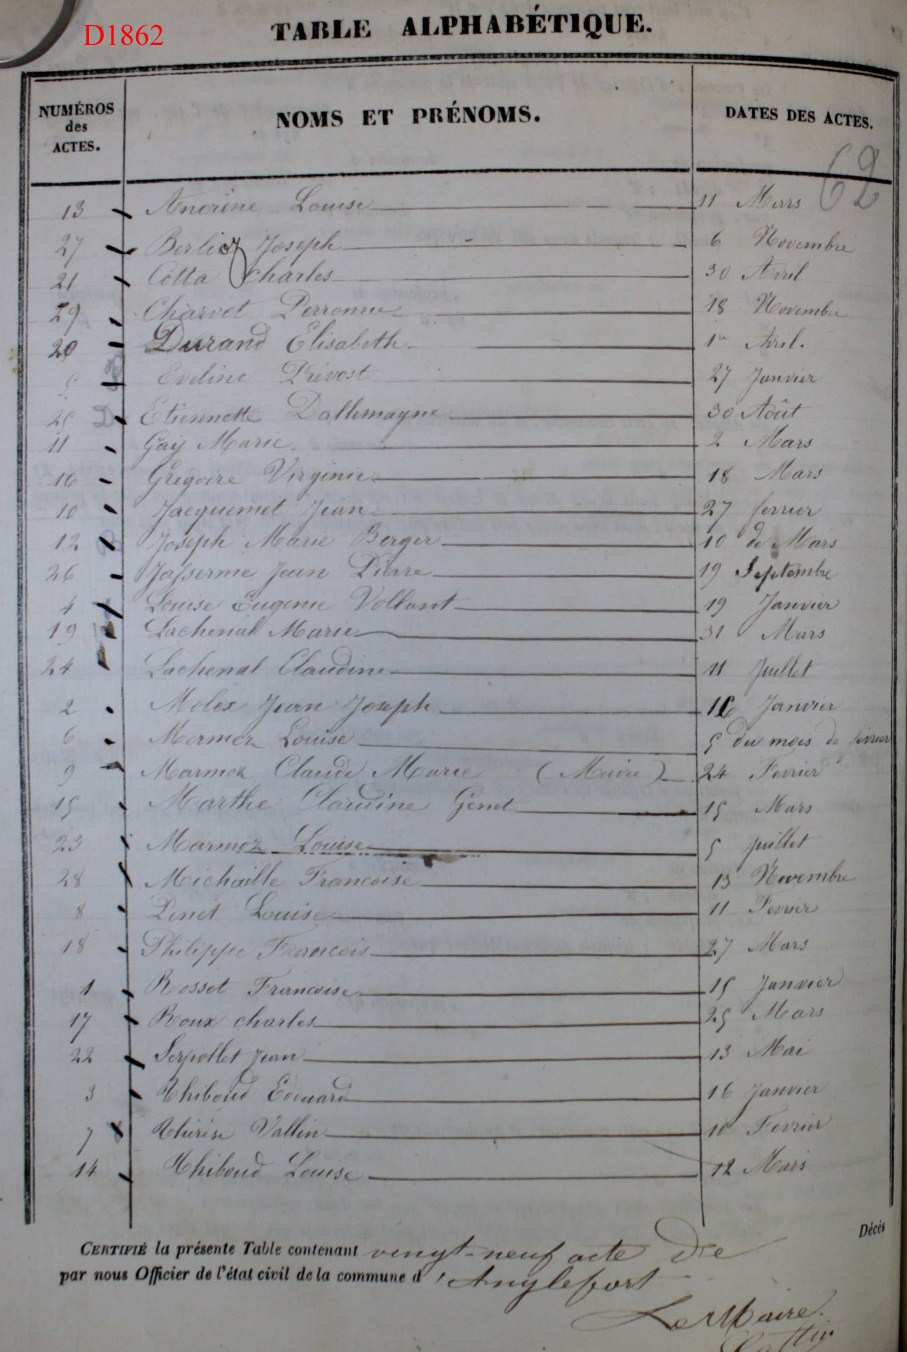 D1862
TABLE ALPHABÉTIQUE.
NUMÉROS des ACTES. NOMS ET PRÉNOMS. DATES DES ACTES.
62
13 Andrène Louise 11 Mars
27 Berlioz Joseph 6 Novembre
21 Cotta Charles 30 Avril
29 Charvet Perronne 18 Novembre
20 Durand Elisabeth 1er Avril.
Eveline Prévost 27 Janvier
25 Etiennette Dallemagne 30 Août
11 Gay Marie 2 Mars
16 Grégoire Virginie 18 Mars
10 Jacquemet Jean 27 fevrier
12 Joseph Marie Berger 10 de Mars
26 Jasserme Jean Pierre 19 Septembre
4 Louise Eugenie Vollant 19 Janvier
19 Lachenal Marie 31 Mars
24 Lachenal Claudine 11 Juillet
2 Molex Jean Joseph 16 Janvier
6 Mermoz Louise 5 du mois de fevrier
9 Marmoz Claude Marie (Maire) 24 Fevrier
15 Marthe Claudine Genod 15 Mars
23 Marmoz Louise 5 juillet
28 Michaille Francoise 13 Novembre
8 Penet Louise 11 Fevrier
18 Philippe Francois 27 Mars
1 Rosset Francoise 15 Janvier
17 Roux charles 25 Mars
22 Serpollet Jean 13 Mai
3 Thiboud Edouard 16 Janvier
7 Thérèse Vallin 10 Fevrier
14 Thiboud Louise 12 Mars
Décès
CERTIFIÉ la présente Table contenant vingt-neuf acte de
par nous Officier de l'état civil de la commune d'Anglefort
Le Maire.